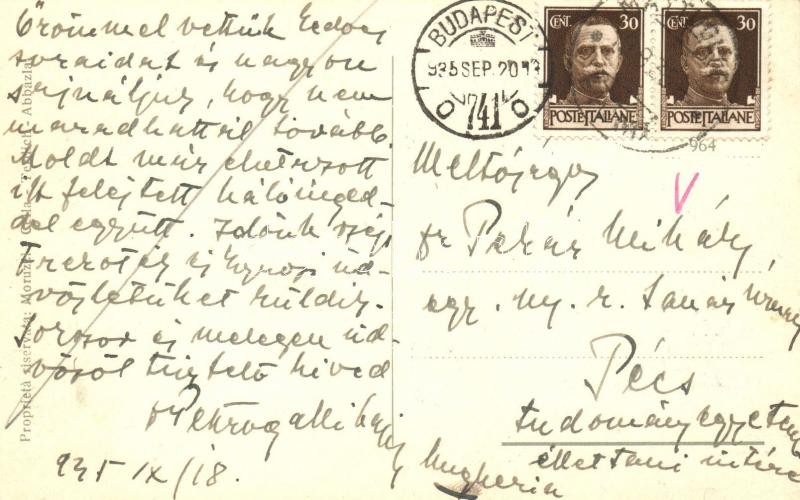 Örömmel vettük kedves
soraidat és nagyon
sajnáljuk, hogy nem
maradhattál tovább.
Moldt már elutazott
itt felejtett hálóinged-
del együtt. Időnk szép
szeretettel üd-
vözletünket küldi.
és melegen üd-
vözöl tisztelő híved
dr Petrogalli
935 IX/18.
Proprietà riservata: Abbazia
BUDAPEST
935 SEP. 20
741
CENT. 30
POSTE ITALIANE
CENT. 30
POSTE ITALIANE
964
Méltóságos
dr Pekár Mihály
egy. ny. r. tanár úrnak
Pécs
tudományegyetem
élettani intéz
Ungheria